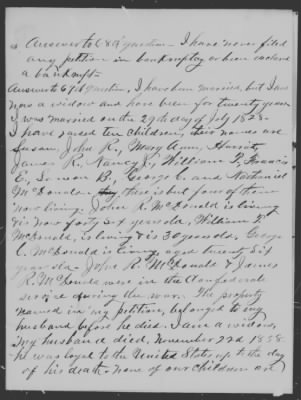 Answer to 68th question - I have never filed
any petition in bankruptcy or been declared
a bankrupt -
Answer to 69th question, I have been married, but I am
now a widow and have been for twenty years
I was married on the 29th day of July 1828 -
I have raised ten Children, their names are
Susan, John R., Mary Ann, Harriet,
James R., Nancy J., William F., Francis
E., B., George C. and Nathaniel
McDonald - there is but four of them
now living, John R. McDonald is living
& is now forty six years old, William F.
McDonald, is living & is 30 years old, George
C. McDonald is living, aged twenty six
years old - John R. McDonald & James
R. McDonald were in the Confederate
service during the war. The property
named in my petition, belonged to my
husband before he died. I am a widow,
my husband died, November 22d 1858
he was loyal to the United States, up to the day
of his death. None of our children are